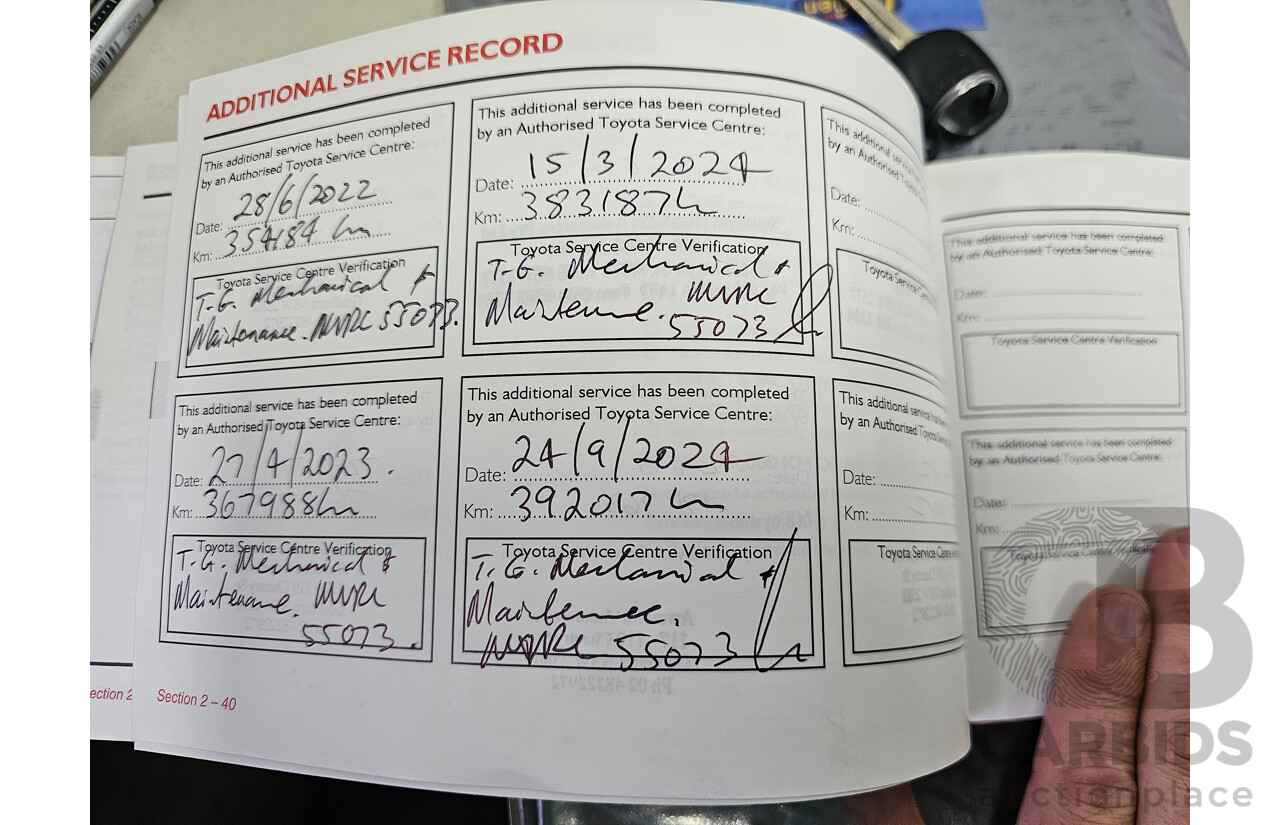 ADDITIONAL SERVICE RECORD
This additional service has been completed
by an Authorised Toyota Service Centre:
Date: 28/6/2022
Km: 354184 km
Toyota Service Centre Verification
T.G. Mechanical +
Maintenance. MVRL 55073.
This additional service has been completed
by an Authorised Toyota Service Centre:
Date: 27/4/2023.
Km: 367988km
Toyota Service Centre Verification
T.G. Mechanical &
Maintenance. MVRL
55073.
This additional service has been completed
by an Authorised Toyota Service Centre:
Date: 15/3/2024
Km: 383187km
Toyota Service Centre Verification
T.G. Mechanical +
Maintenance. MVRL
55073
This additional service has been completed
by an Authorised Toyota Service Centre:
Date: 24/9/2024
Km: 392017km
Toyota Service Centre Verification
T.G. Mechanical +
Maintenance.
MVRL 55073
This additional
by an Authorised
Date:
Km:
Toyota Service
This additional service
by an Authorised Toyota
Date:
Km:
Toyota Service
This additional service has been completed
by an Authorised Toyota Service Centre:
Date:
Km:
Toyota Service Centre Verification
This additional service has been completed
by an Authorised Toyota Service Centre:
Date:
Km:
Toyota Service Centre
Section 2 – 40
ection 2
CARBIDS
auctionplace